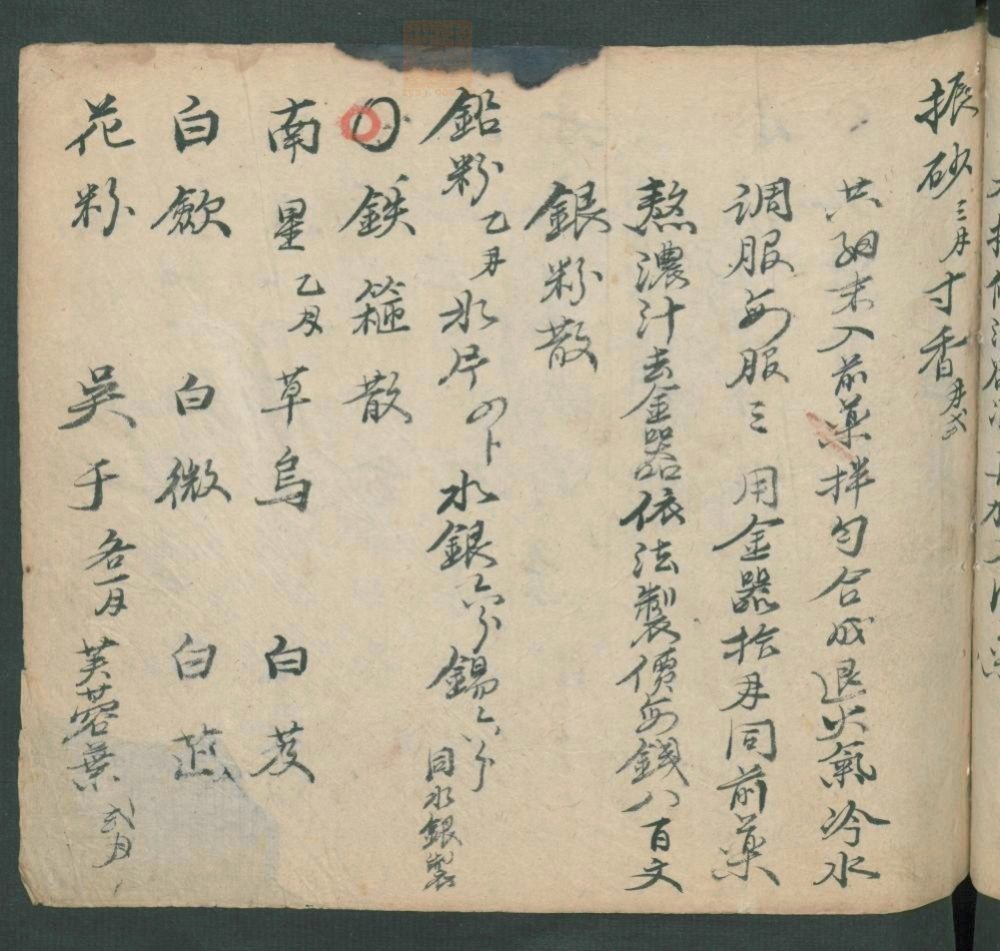 振砂三月寸香
共細末入前藥拌匀合成退火氣冷水
调服每服三 用金器拾月同前藥
熬濃汁去金器依法製價每錢八百文
銀粉散
鉛粉乙月水片四卜水銀六分錫六分同水銀製
鉄箍散
南星乙月 草烏 白芨
白歛 白微 白芷
花粉 吳于各一月芙蓉葉弍月